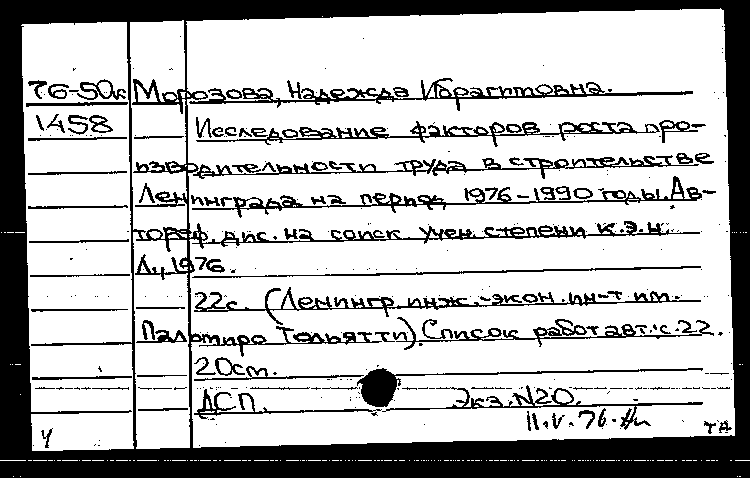 76-50к Морозова, Надежда Ибрагимовна.
1458 Исследование факторов роста про-
изводительности труда в строительстве
Ленинграда на период 1976-1990 годы. Ав-
тореф. дис. на соиск. учен. степени к.э.н.
Л., 1976.
22с. (Ленингр. инж.-экон. ин-т им.
Пальмиро Тольятти). Список работ авт.: с. 22.
20см.
ДСП. Экз. N20.
11.V.76.